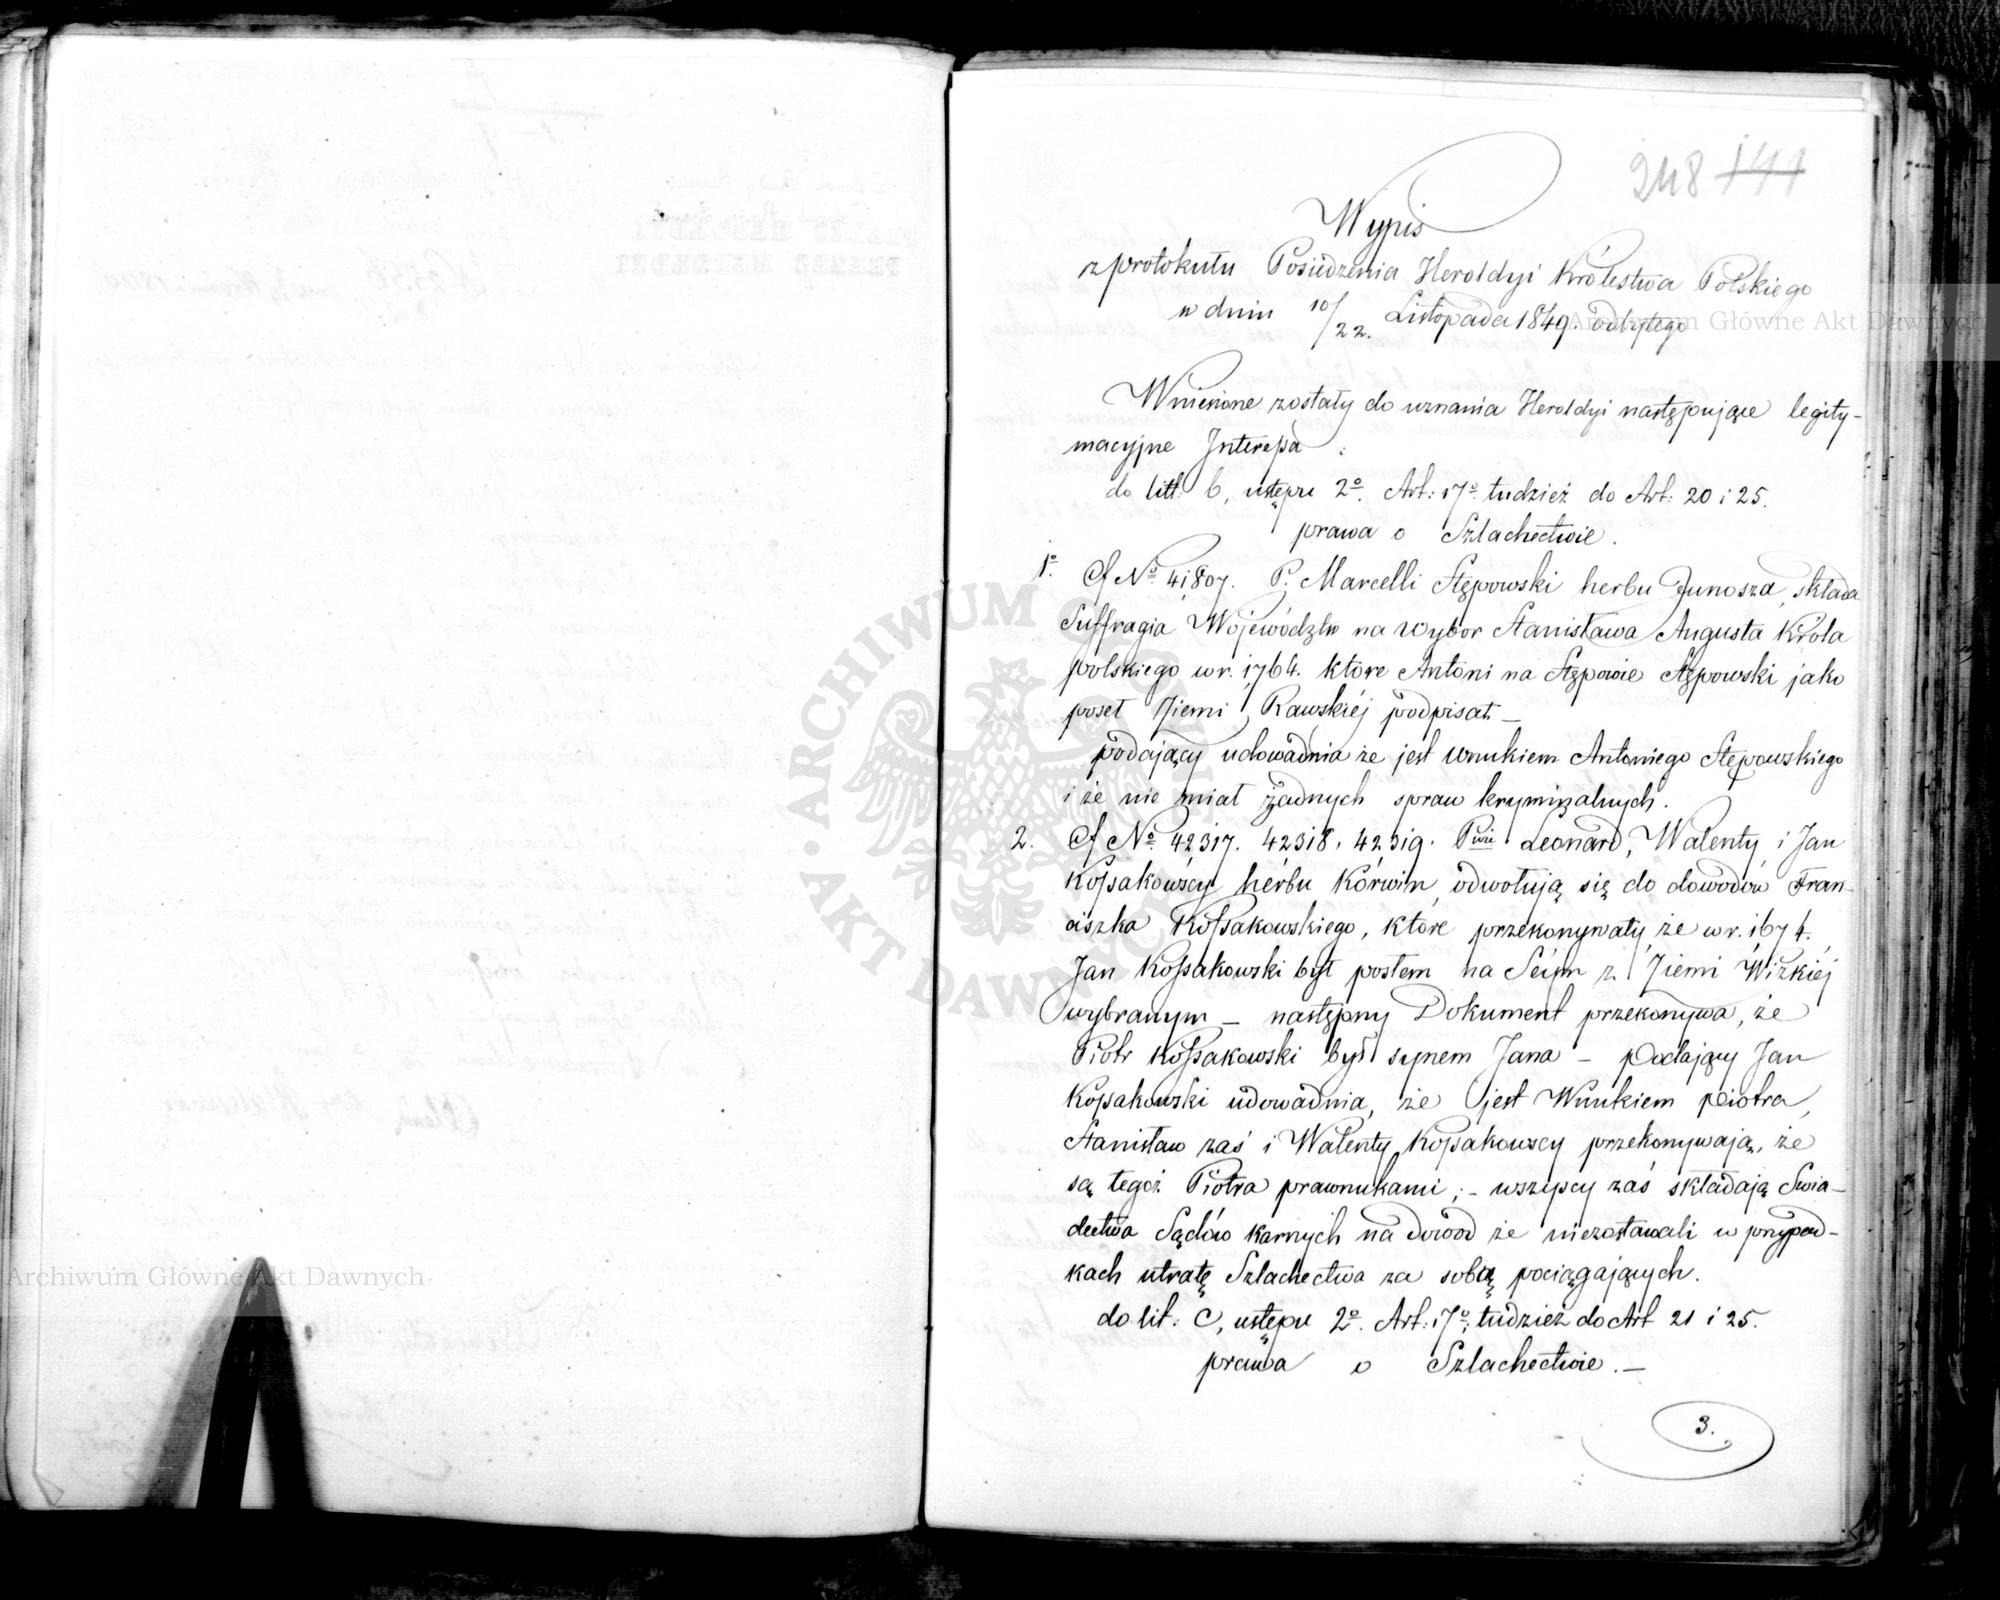 248 141
Wypis
z protokułu Posiedzenia Heroldyi Królestwa Polskiego
w dniu 10/22. Listopada 1849. odbytego
Wniesione zostały do uznania Heroldyi następujące legity-
macyjne Interessa :
do litt: b, ustępu 2º. Art: 17º tudzież do Art: 20 i 25.
prawa o Szlachectwie.
1º. Nº 41807. P. Marcelli Stępowski herbu Junosza, składa
Suffragia Województw na wybór Stanisława Augusta Króla
polskiego w r. 1764. które Antoni na Stępowie Stępowski jako
poseł Ziemi Rawskiéj podpisał —
podający udowadnia że jest wnukiem Antoniego Stępowskiego
i że nie miał żadnych spraw kryminalnych.
2. Nº 42317. 42318. 42319. Pwie Leonard, Walenty i Jan
Kossakowscy herbu Korwin, odwołują się do dowodów Fran-
ciszka Kossakowskiego, które przekonywały, że w r. 1674.
Jan Kossakowski był posłem na Sejm z Ziemi Wizkiéj
wybranym — następny Dokument przekonywa, że
Piotr Kossakowski był synem Jana — Podający Jan
Kossakowski udowadnia, że jest Wnukiem Piotra,
Stanisław zaś i Walenty Kossakowscy przekonywają, że
są tegoż Piotra prawnukami ; - wszyscy zaś składają Swia-
dectwa Sądów karnych na dowód że niezostawali w przypad-
kach utratę Szlachectwa za sobą pociągających.
do lit: C, ustępu 2º. Art: 17º, tudzież do Art 21 i 25.
prawa o Szlachectwie. —
3.
Archiwum Główne Akt Dawnych
Archiwum Główne Akt Dawnych
ARCHIWUM GŁÓWNE AKT DAWNYCH